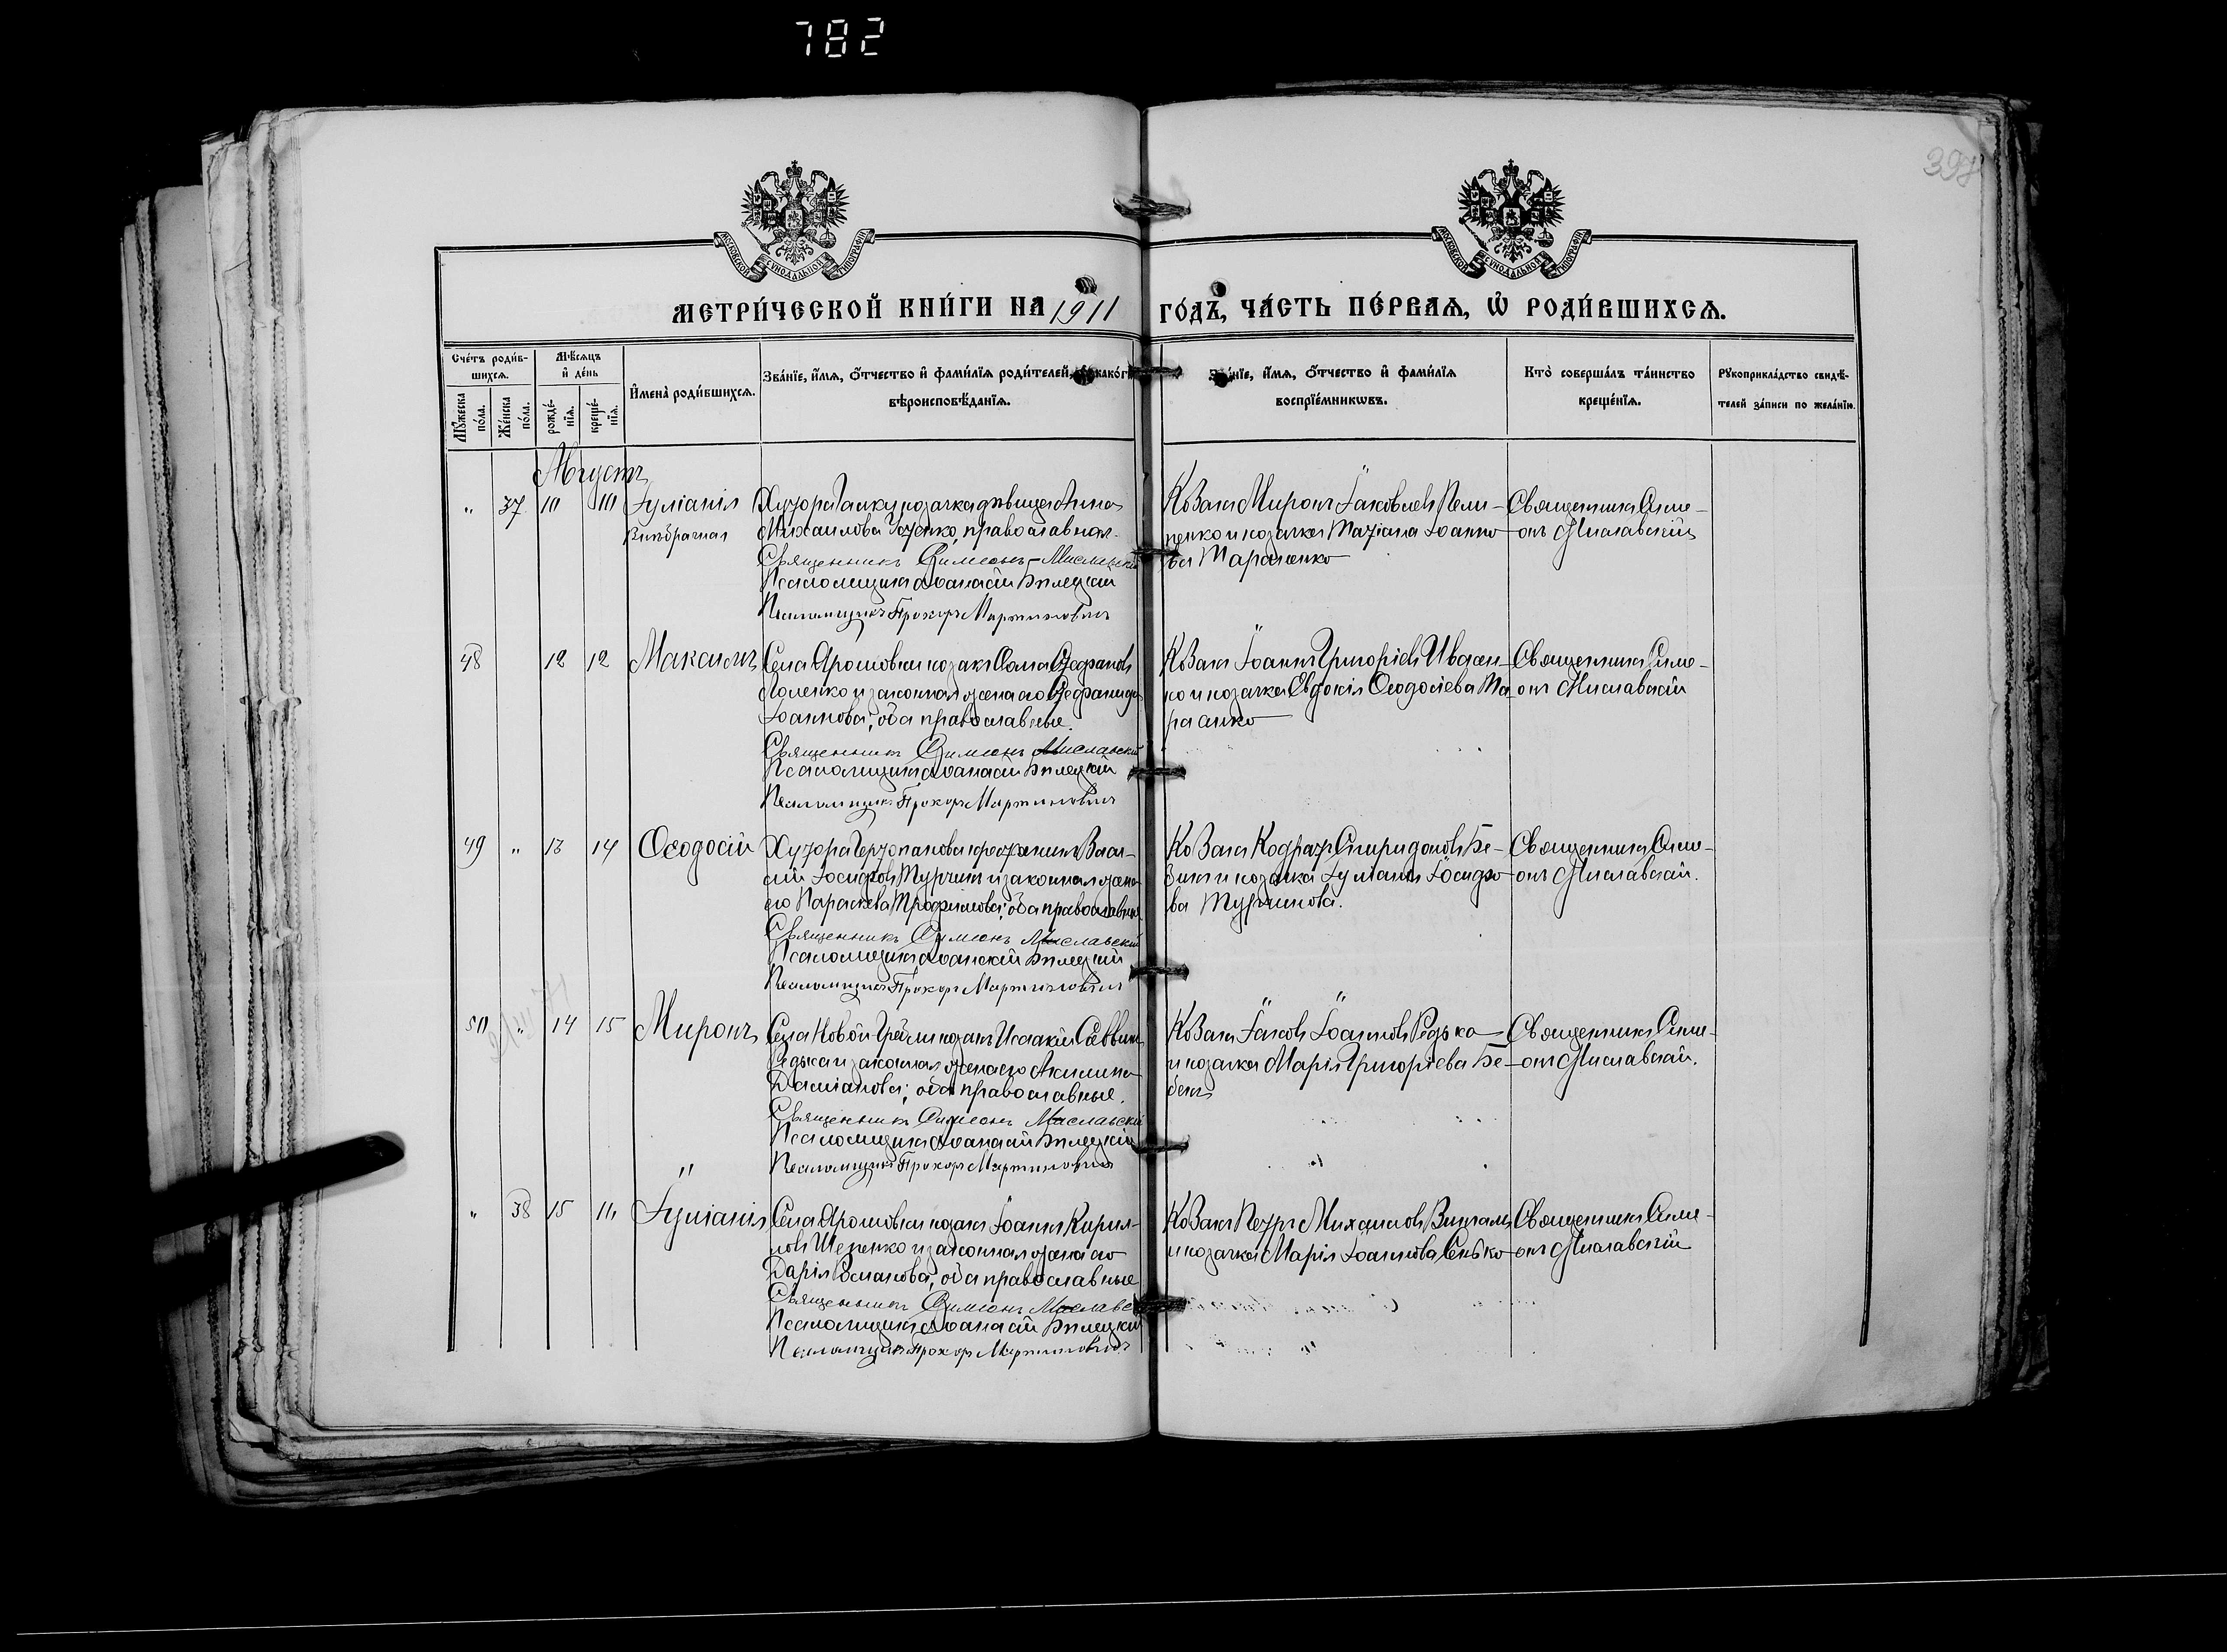 782
398
МОСКОВСКОЙ СѴНОДАЛЬНОЙ ТИПОГРАФІИ
МОСКОВСКОЙ СѴНОДАЛЬНОЙ ТИПОГРАФІИ
МЕТРИ́ЧЕСКОЙ КНИ́ГИ НА 1911 ГО́ДЪ, ЧА́СТЬ ПЕ́РВАѦ, Ѡ҆ РОДИ́ВШИХСѦ.
Сче́тъ роди́в-
шихсѧ.
Мꙋ́жеска по́ла.
Же́нска по́ла.
Мѣ́сѧцъ
и҆ де́нь
рожде́-
нїѧ.
креще́-
нїѧ.
И҆мена̀ роди́вшихсѧ.
Зва́нїе, и҆́мѧ, о҆́тчество и҆ фами́лїѧ роди́телей, како́г
вѣроисповѣ́данїѧ.
Зва́нїе, и҆́мѧ, о҆́тчество и҆ фами́лїѧ
воспрїе́мникѡвъ.
Кто̀ соверша́лъ та́инство
креще́нїѧ.
Рꙋкоприкла́дство свидѣ́-
телей за́писи по жела́нїю.
Августъ
" 37 10 10 Іуліанія
Внѣбрачная
Хутора козачка дѣвица Анна
Михаилова православная.
Священникъ Симеонъ Миславскій
Псаломщикъ Аѳанасій Бѣлецкій
Псаломщикъ Прохоръ Мартиновичъ
Козакъ Миронъ Іаковлевъ Пели-
пенко и козачка Татіана Іоанно-
ва Тараненко
Священникъ Симе-
онъ Миславскій
48 12 12 Максимъ
Села Ярошовки козакъ Стефановъ
и законная жена его Стефанида
Іоаннова; оба православные.
Священникъ Симеонъ Миславскій
Псаломщикъ Аѳанасій Бѣлецкій
Псаломщикъ Прохоръ Мартиновичъ
Козакъ Іоаннъ Григоріевъ Иващен-
ко и козачка Евдокія Ѳеодосіева
Священникъ Симе-
онъ Миславскій
49 " 13 14 Ѳеодосій
Хутора крестьянинъ Васи-
лій Іосифовъ Турчинъ и законная жена
его Параскева Трофимова; оба православные
Священникъ Симеонъ Миславскій
Псаломщикъ Аѳанасій Бѣлецкій
Псаломщикъ Прохоръ Мартиновичъ
Козакъ Кодратъ Спиридоновъ Бе-
и козачка Іуліанія Іосифо-
ва Турчинова.
Священникъ Симе-
онъ Миславскій.
50 " 14 15 Миронъ
Села Новой Гребли козакъ Исаакій Саввинъ
Редька и законная жена его Акилина
Даміанова; оба православные.
Священникъ Симеонъ Миславскій
Псаломщикъ Аѳанасій Бѣлецкій
Псаломщикъ Прохоръ Мартиновичъ
Козакъ Іаковъ Іоанновъ Редька
и козачка Марія Григоріева
Священникъ Симе-
онъ Миславскій.
" 38 15 16 Іуліанія
Села Ярошовки козакъ Іоаннъ Кирил-
ловъ и законная жена его
Дарія Романова; оба православные
Священникъ Симеонъ Миславс
Псаломщикъ Аѳанасій Бѣлецкій
Псаломщикъ Прохоръ Мартиновичъ
Козакъ Петръ Михаиловъ
и козачка Марія Іоаннова Сенько
Священникъ Симе-
онъ Миславскій